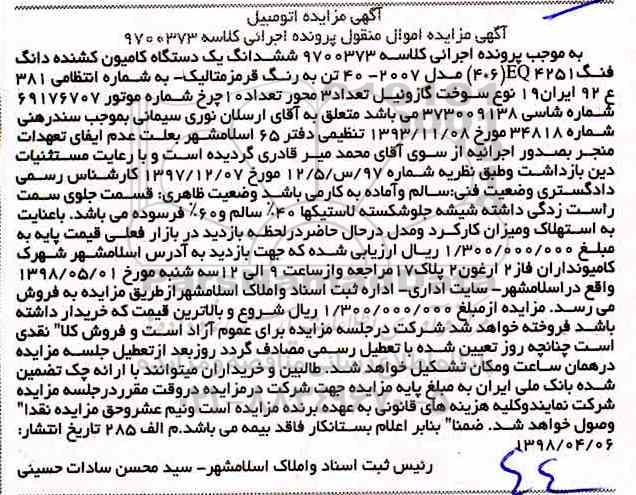 آگهی مزایده اتومبیل
آگهی مزایده اموال منقول پرونده اجرائی کلاسه ۹۷۰۰۳۷۳
به موجب پرونده اجرائی کلاسه ۹۷۰۰۳۷۳ ششدانگ یک دستگاه کامیون کشنده دانگ
فنگ EQ ۴۲۵۱(۴۰۶) مدل ۲۰۰۷- ۴۰ تن به رنگ قرمزمتالیک- به شماره انتظامی ۳۸۱
ع ۹۲ ایران۱۹ نوع سوخت گازوئیل تعداد۳ محور تعداد۱۰چرخ شماره موتور ۶۹۱۷۶۷۰۷
شماره شاسی ۳۷۳۰۰۹۱۳۸ می باشد متعلق به آقای ارسلان نوری سیمانی بموجب سندرهنی
شماره ۳۴۸۱۸ مورخ ۱۳۹۳/۱۱/۰۸ تنظیمی دفتر ۶۵ اسلامشهر بعلت عدم ایفای تعهدات
منجر بصدور اجرائیه از سوی آقای محمد میر قادری گردیده است و با رعایت مستثنیات
دین بازداشت وطبق نظریه شماره ۹۷/س/۱۲/۵ مورخ ۱۳۹۷/۱۲/۰۷ کارشناس رسمی
دادگستری وضعیت فنی:سالم وآماده به کارمی باشد وضعیت ظاهری: قسمت جلوی سمت
راست زدگی داشته شیشه جلوشکسته لاستیکها ۴۰٪ سالم و۶۰٪ فرسوده می باشد. باعنایت
به استهلاک ومیزان کارکرد ومدل درحال حاضردرلحظه بازدید در بازار فعلی قیمت پایه به
مبلغ ۱/۳۰۰/۰۰۰/۰۰۰ ریال ارزیابی شده که جهت بازدید به آدرس اسلامشهر شهرک
کامیونداران فاز۲ ارغون۲ پلاک۱۷ مراجعه وازساعت ۹ الی ۱۲سه شنبه مورخ ۱۳۹۸/۰۵/۰۱
واقع دراسلامشهر- سایت اداری- اداره ثبت اسناد واملاک اسلامشهرازطریق مزایده به فروش
می رسد. مزایده ازمبلغ ۱/۳۰۰/۰۰۰/۰۰۰ ریال شروع و بالاترین قیمت که خریدار داشته
باشد فروخته خواهد شد شرکت درجلسه مزایده برای عموم آزاد است و فروش کلا" نقدی
است چنانچه روز تعیین شده با تعطیل رسمی مصادف گردد روزبعد ازتعطیل جلسه مزایده
درهمان ساعت ومکان تشکیل خواهد شد. طالبین و خریداران میتوانند با ارائه چک تضمین
شده بانک ملی ایران به مبلغ پایه مزایده جهت شرکت درمزایده دروقت مقرردرجلسه مزایده
شرکت نمایندوکلیه هزینه های قانونی به عهده برنده مزایده است ونیم عشروحق مزایده نقدا"
وصول خواهد شد. ضمنا" بنابر اعلام بستانکار فاقد بیمه می باشد.م الف ۲۸۵ تاریخ انتشار:
۱۳۹۸/۰۴/۰۶
رئیس ثبت اسناد واملاک اسلامشهر- سید محسن سادات حسینی